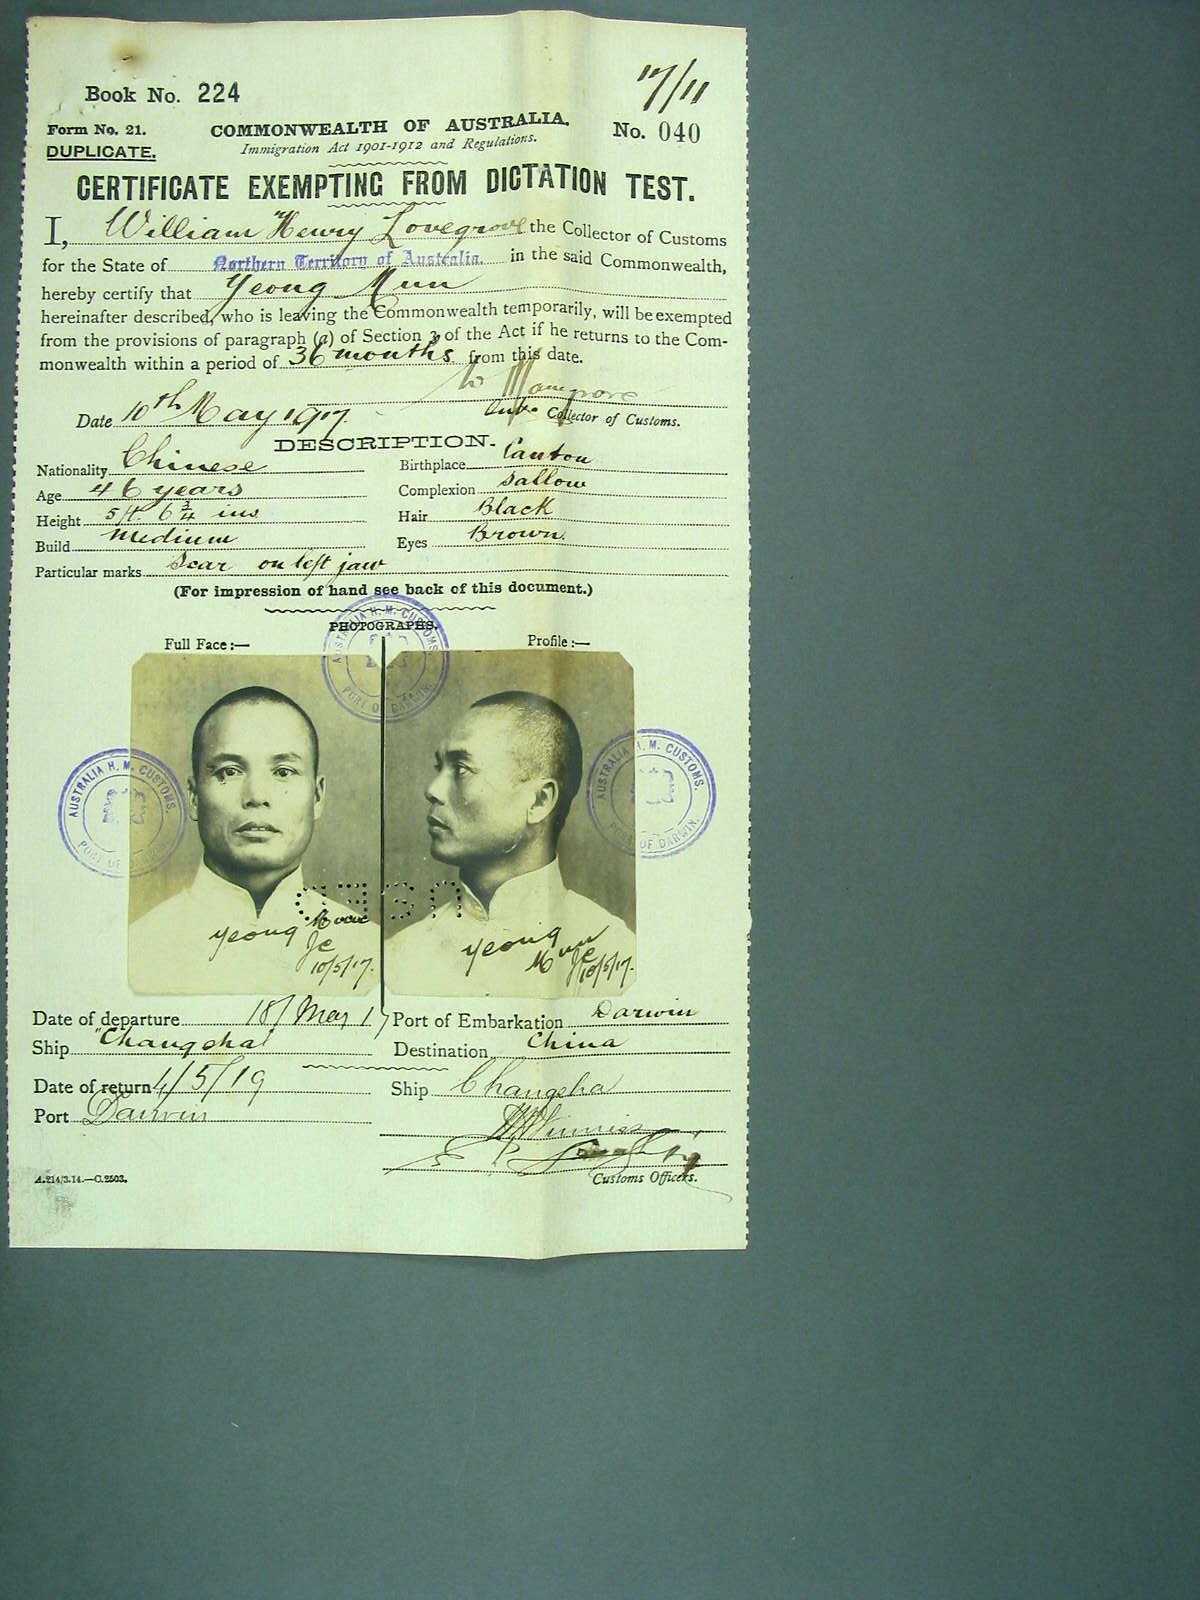 17/11
Book No. 224
Form No. 21.
COMMONWEALTH OF AUSTRALIA.
No. 040
DUPLICATE.
Immigration Act 1901-1912 and Regulations.
CERTIFICATE EXEMPTING FROM DICTATION TEST.
I, William Henry Lovegrove the Collector of Customs
for the State of Northern Territory of Australia. in the said Commonwealth,
hereby certify that Yeong Mun
hereinafter described, who is leaving the Commonwealth temporarily, will be exempted
from the provisions of paragraph (a) of Section 3 of the Act if he returns to the Com-
monwealth within a period of 36 months from this date.
Date 10th May 1917.
Collector of Customs.
DESCRIPTION.
Nationality Chinese
Birthplace Canton
Age 46 years
Complexion Sallow
Height 5 ft. 6 3/4 ins
Hair Black
Build Medium
Eyes Brown.
Particular marks Scar on left jaw
(For impression of hand see back of this document.)
PHOTOGRAPHS.
Full Face:—
Profile:—
AUSTRALIA H. M. CUSTOMS.
PORT OF DARWIN.
AUSTRALIA H. M. CUSTOMS.
PORT OF DARWIN.
AUSTRALIA H. M. CUSTOMS.
PORT OF DARWIN.
USED
Yeong Mun
10/5/17.
Yeong
Mun
10/5/17.
Date of departure 18/ May 17
Port of Embarkation Darwin
Ship "Changsha"
Destination China
Date of return 4/5/19
Ship Changsha
Port Darwin
Customs Officers.
A.214/3.14.—C.2503.